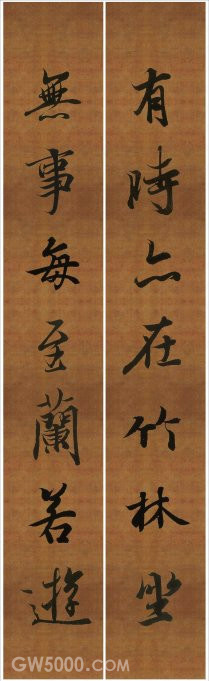 有時亦在竹林坐
無事每至蘭若遊
GW5000.COM